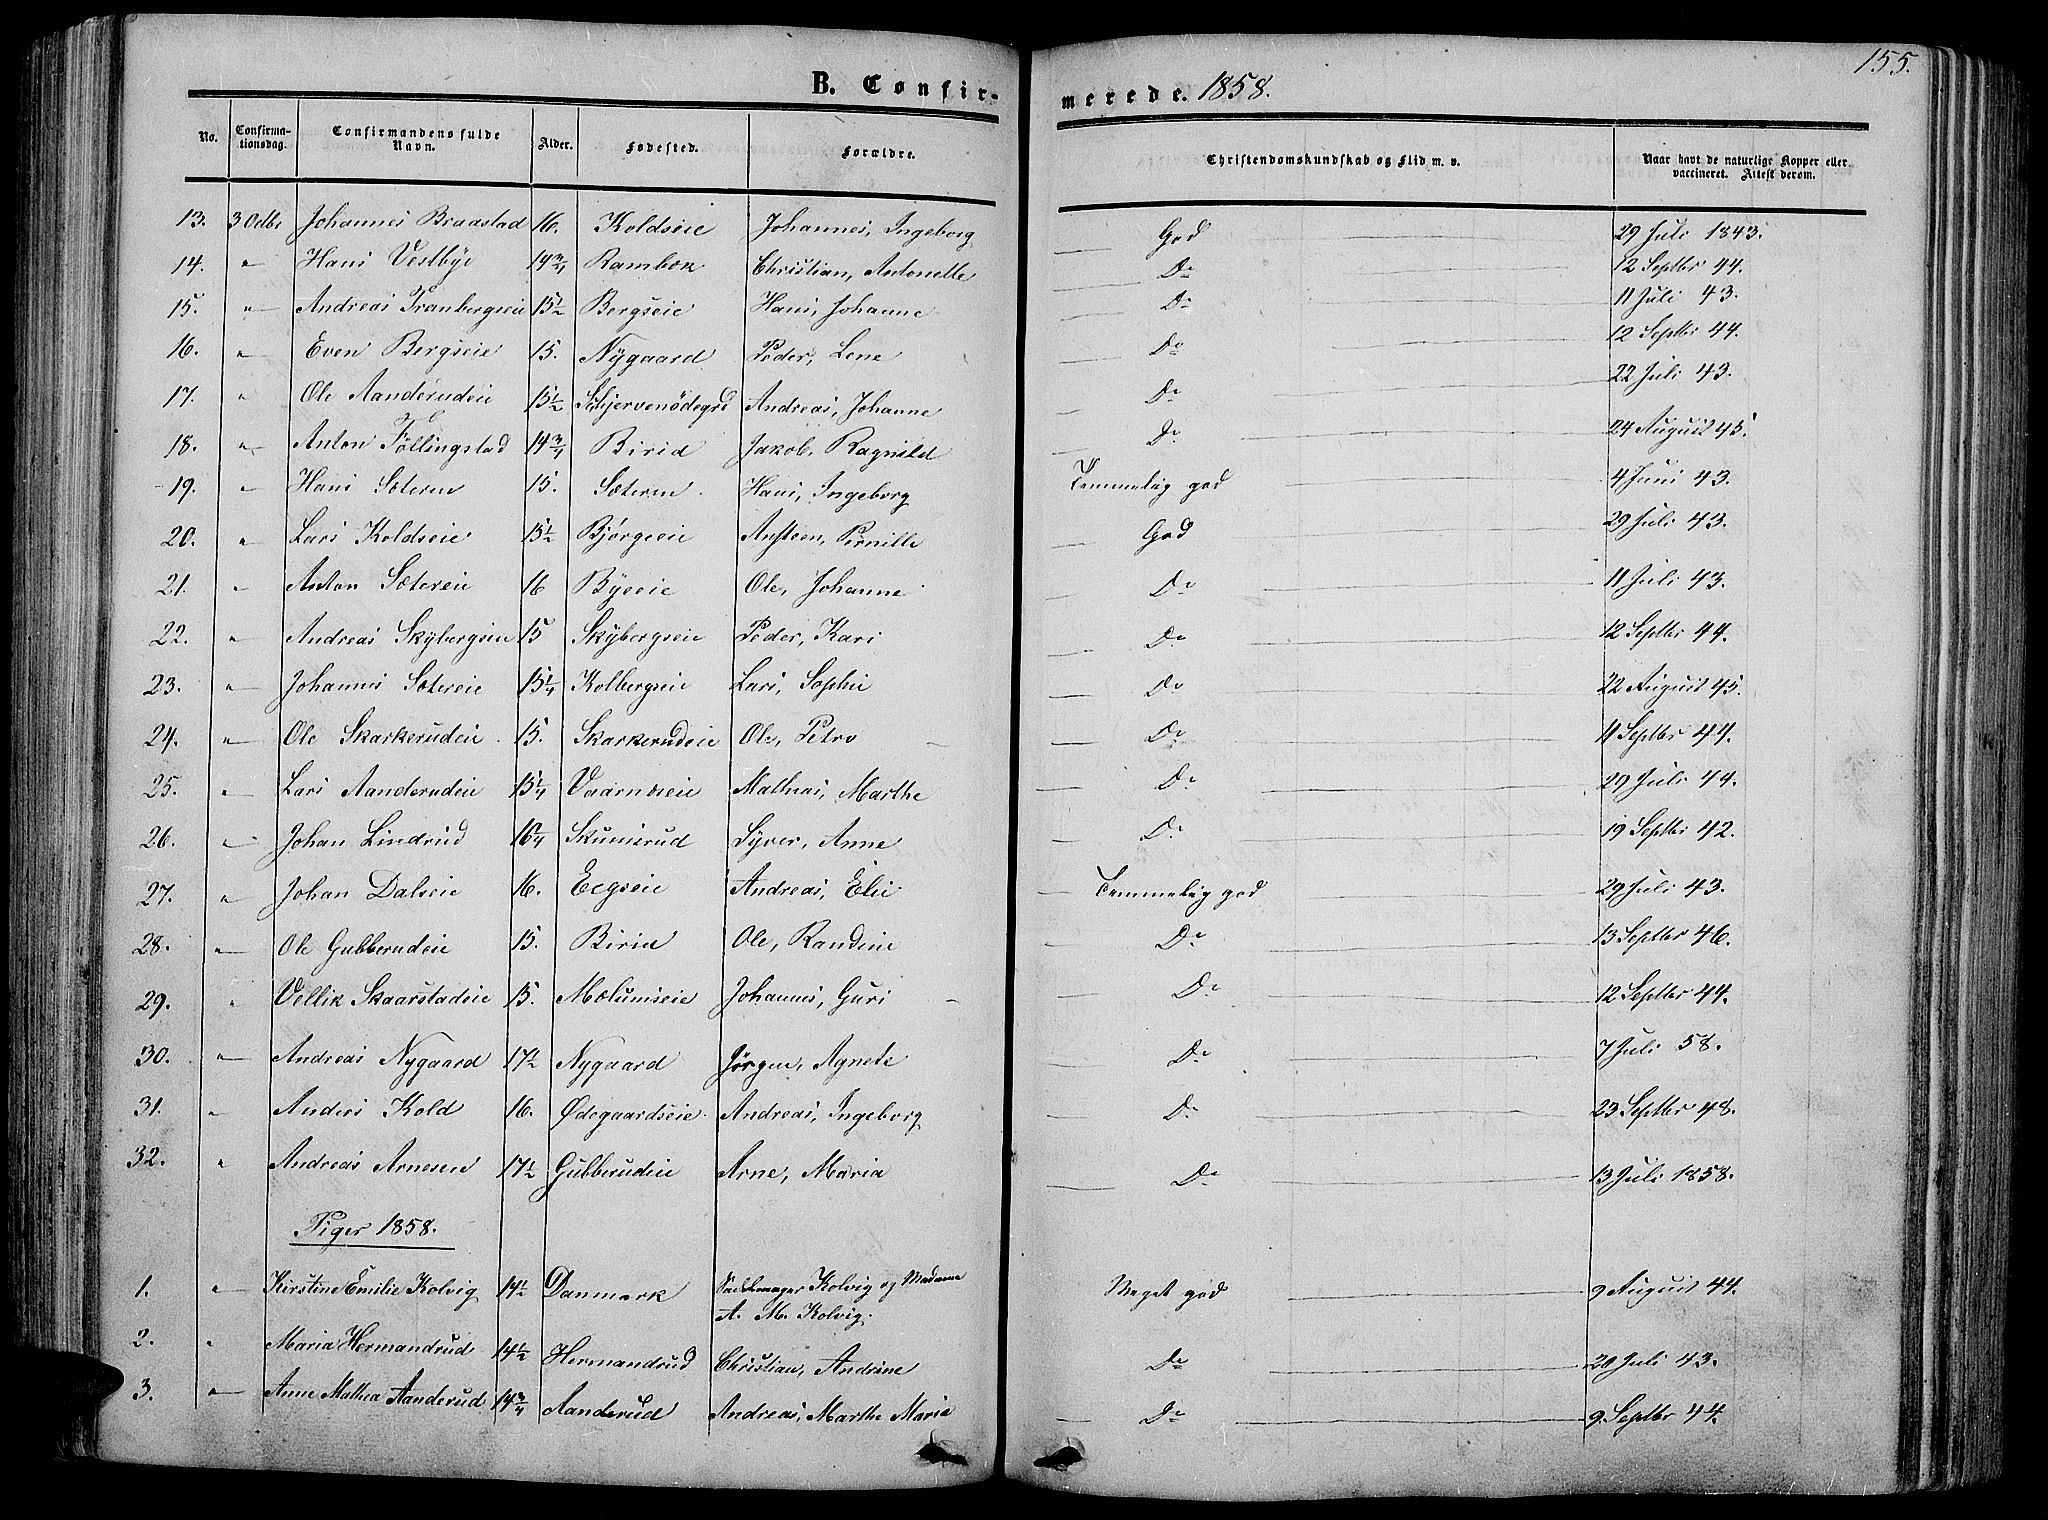 155.
B. Confirmerede. 1858.
No. Confirmationsdag. Confirmandens fulde Navn. Alder. Fødested. Forældre. Christendomskundskab og Flid m. v. Naar havt de naturlige Kopper eller vaccineret. Attest derom.
13. 3 Octbr Johannes Braastad 16. Koldseie Johannes, Ingeborg God 29 Juli 1843.
14. " Hans Vestbye 14 3/4 Rambæk Christian, Antonette Do 12 Septbr 44.
15. " Andreas Tranbergseie 15 1/2 Bergseie Hans, Johanne Do 11 Juli 43.
16. " Even Bergseie 15. Nygaard Peder, Lene Do 12 Septbr 44.
17. " Ole Aanderudeie 15 1/2 Skjervenödegrd Andreas, Johanne Do 22 Juli 43.
18. " Anton Föllingstad 14 3/4 Birid Jakob, Ragnild Do 24 August 45.
19. " Hans Sæteren 15. Sæteren Hans, Ingeborg Temmelig god 4 Juni 43.
20. " Lars Koldseie 15 1/2 Bjørgseie Anfteen, Pernille God 29 Juli 43.
21. " Anton Sætereie 16 Byseie Ole, Johanne Do 11 Juli 43.
22. " Andreas Skybergseie 15 Skybergseie Peder, Kari Do 12 Septbr 44.
23. " Johannes Sætereie 15 1/4 Kolbergseie Lars, Sophie Do 22 August 45.
24. " Ole Skarkerudeie 15. Skarkerudseie Ole, Petro Do 11 Septbr 44.
25. " Lars Aanderudeie 15 1/4 Vaarnæseie Mathias, Marthe Do 29 Juli 44.
26. " Johan Lindrud 16 Skunisrud Syver, Anne Do 19 Septbr 42.
27. " Johan Dalseie 16. Eegseie Andreas, Elie Temmelig god 29 Juli 43.
28. " Ole Gubberudeie 15. Birid Ole, Randine Do 13 Septbr 46.
29. " Vellik Skaarstadeie 15. Mælumseie Johannes, Guri Do 12 Septbr 44.
30. " Andreas Nygaard 17 1/2 Nygaard Jörgen, Agnete Do 7 Juli 58.
31. " Anders Kold 16. Ødegaardseie Andreas, Ingeborg Do 23 Septbr 48.
32. " Andreas Arnesen 17 1/2 Gubberudeie Arne, Maria Do 13 Juli 1858.
Piger 1858.
1. " Kirstine Emilie Kolvig 14 1/2 Danmark Sadelmager Kolvig og Madame
A. M. Kolvig. Meget god 9 August 44.
2. " Maria Hermandrud 14 1/2 Hermandrud Christian, Andrine Do 20 Juli 43.
3. " Anne Mathea Aanderud 14 3/4 Aanderud Andreas, Marthe Maria Do 9. Septbr 44.